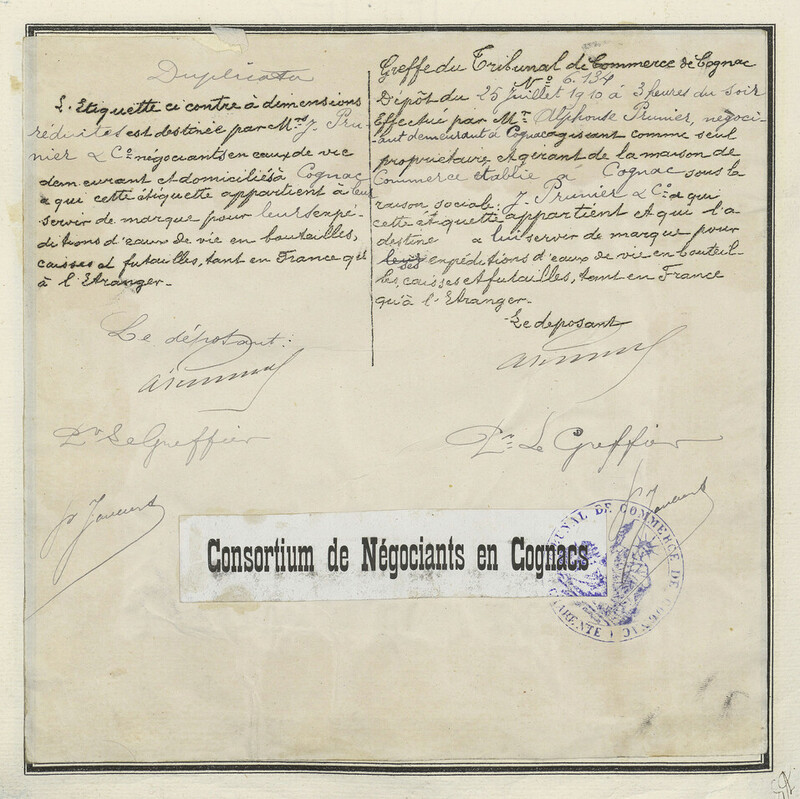 Duplicata
L'Etiquette ci contre à dimensions
réduites est destinée par Mrs J. Pru-
nier & Co négociants en eaux de vie
demeurant et domiciliés à Cognac
a qui cette étiquette appartient à leur
servir de marque pour leurs expé-
ditions d'eaux de vie en bouteilles,
caisses et futailles, tant en France qu'
à l'Etranger.
Le déposant:
Pr Le Greffier
Greffe du Tribunal de Commerce de Cognac
No 6.134
Dépôt du 25 Juillet 1910 à 3 heures du soir
Effectué par Mr Alphonse Prunier, négoci-
ant demeurant à Cognac agissant comme seul
propriétaire et gérant de la maison de
Commerce établie à Cognac sous la
raison sociale: J. Prunier & Co a qui
cette étiquette appartient et qui l'a
destine a lui servir de marque pour
ses expéditions d'eaux de vie en bouteil-
les, caisses et futailles, tant en France
qu'à l'Etranger.
Le deposant
Pr Le Greffier
Consortium de Négociants en Cognacs
TRIBUNAL DE COMMERCE DE COGNAC
CHARENTE